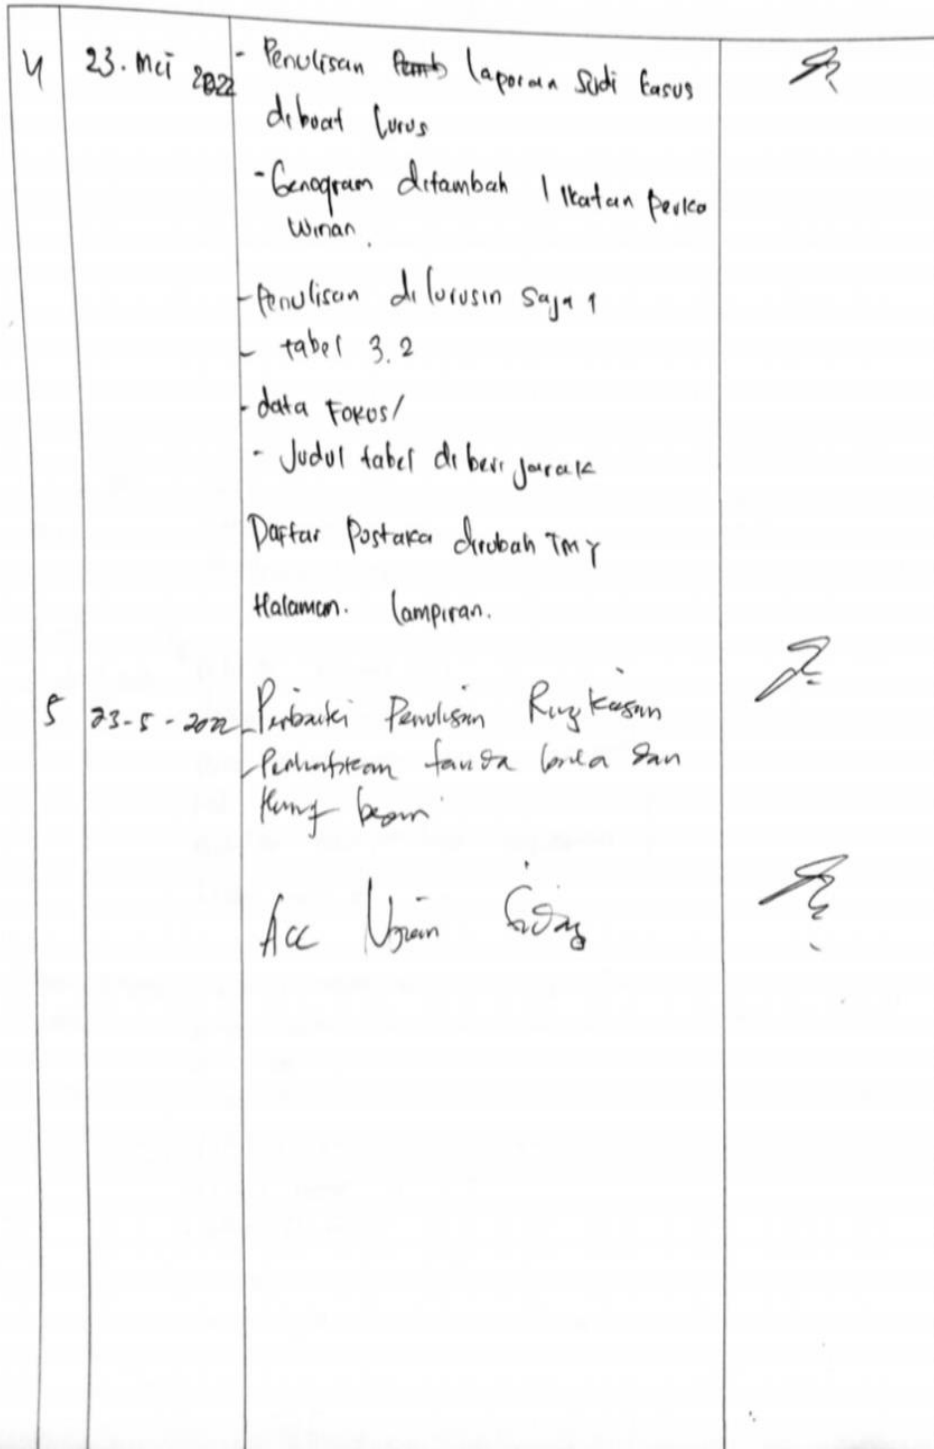 4 23. Mei 2022 - Penulisan laporan Sudi kasus
dibuat lurus
- Genogram ditambah 1 Ikatan perka
winan.
- Penulisan dilurusin saja 1
- tabel 3.2
- data Fokus/
- Judul tabel diberi jarak
Daftar Pustaka dirubah TMY
Halaman. lampiran.
5 23-5-2022 - Perbaiki Penulisan Ringkasan
- Perhatikan tanda baca dan
Huruf besar
Acc Ujian Sidang